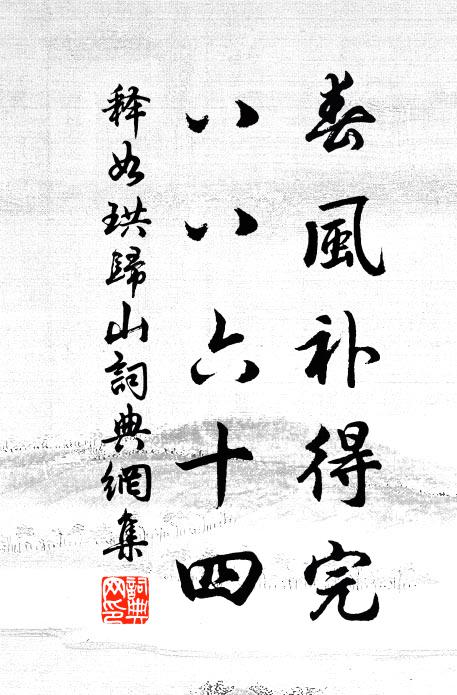 春風补得完
八八六十四
释如珙歸山詞典網集
詞典网印